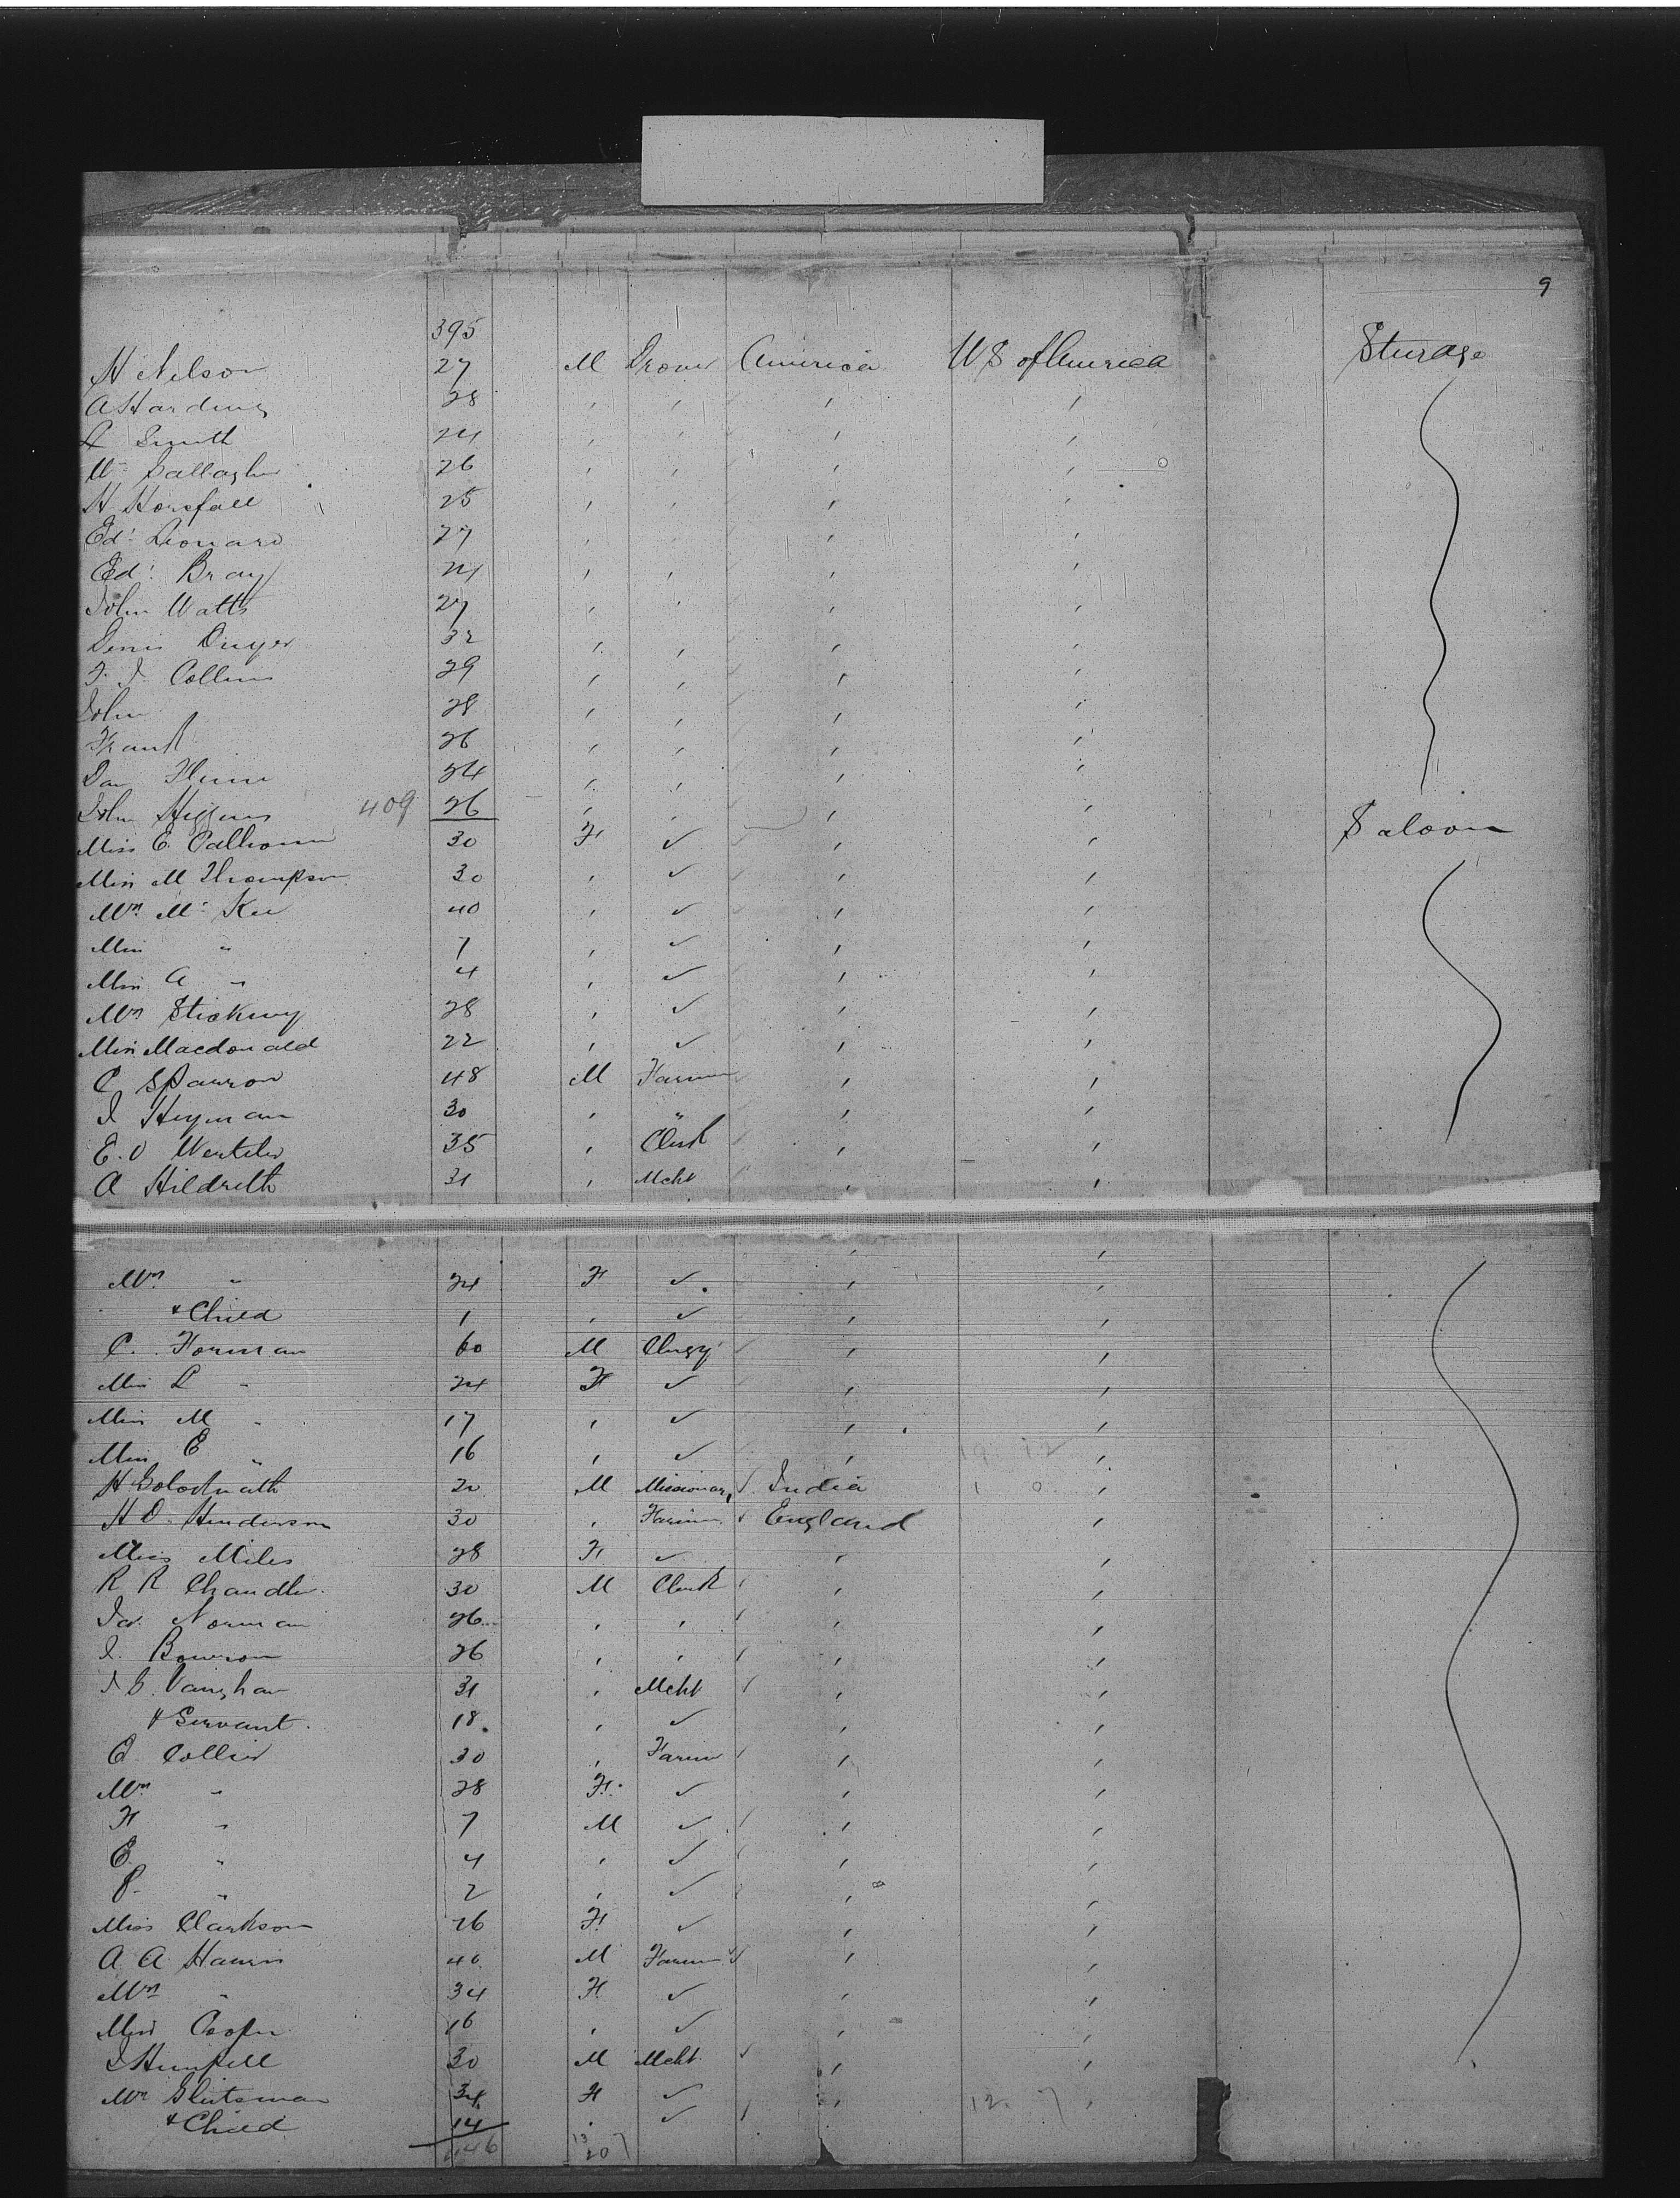 9
395
H Nelson 27 M Drover America U S of America Sturage
A Harding 28 , , , ,
Smith 24 , , , ,
Wm Gallagher 26 , , , ,
H Horsfall 25 , , , ,
Edd Leonard 27 , , , ,
Edd Bray 24 , , , ,
John Watts 27 , , , ,
Denis Dwyer 32 , , , ,
F. J. Collins 29 , , , ,
John 28 , , , ,
Frank 26 , , , ,
Dan Flinn 24 , , , ,
John Higgins 409 26 , , , ,
Miss E. Calhoun 30 F ✓ , , Saloon
Miss M Thompson 30 , ✓ , ,
Mrs Mc Kee 40 , ✓ , ,
Miss " 7 , ✓ , ,
Miss A " 4 , ✓ , ,
Mrs Stickney 28 , ✓ , ,
Miss Macdonald 22 , ✓ , ,
C Sparrow 48 M Farmer , ,
I Heyman 30 , " , ,
E. O 35 , Clerk , ,
A Hildreth 31 , Mcht , ,
Mrs " 24 F ✓ , ,
+ Child 1 , ✓ , ,
C. Forman 60 M Clergy , ,
Miss " 24 F ✓ , ,
Miss M " 17 , ✓ , ,
Miss E " 16 , ✓ , ,
H Goloknath M Missionary ✓ India ,
H D. Henderson 30 , Farmer ✓ England ,
Miss Miles 28 F ✓ , ,
R R Chandler 30 M Clerk , ,
Jas. Norman 26 , , , ,
J. Bowron 26 , , , ,
J G. Vaughan 31 , Mcht ✓ , ,
+ Servant 18 , ✓ , ,
C Collier 30 , Farmer , ,
Mrs " 28 F ✓ , ,
F " 7 M ✓ , ,
E " 4 , ✓ , ,
P. " 2 , ✓ , ,
Miss Clarkson 26 F ✓ , ,
A A Harris 40 M Farmer ✓ , ,
Mrs " 34 F ✓ , ,
Miss Cooper 16 , ✓ , ,
30 M Mcht ✓ , ,
Mrs Glutsman 34 F ✓ , ,
+ Child 14 , ✓
446